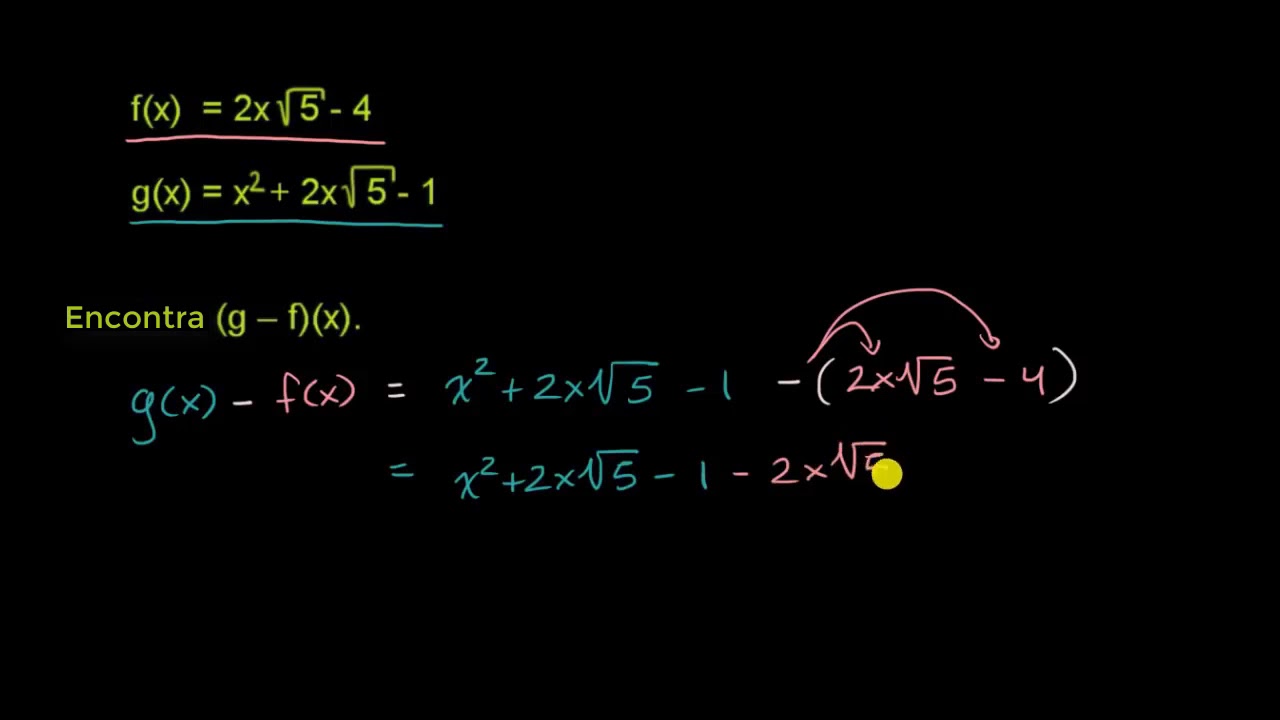 f(x) = 2x√5 - 4
g(x) = x² + 2x√5 - 1
Encontra (g – f)(x).
g(x) - f(x) = x² + 2x√5 - 1 - (2x√5 - 4)
= x² + 2x√5 - 1 - 2x√5